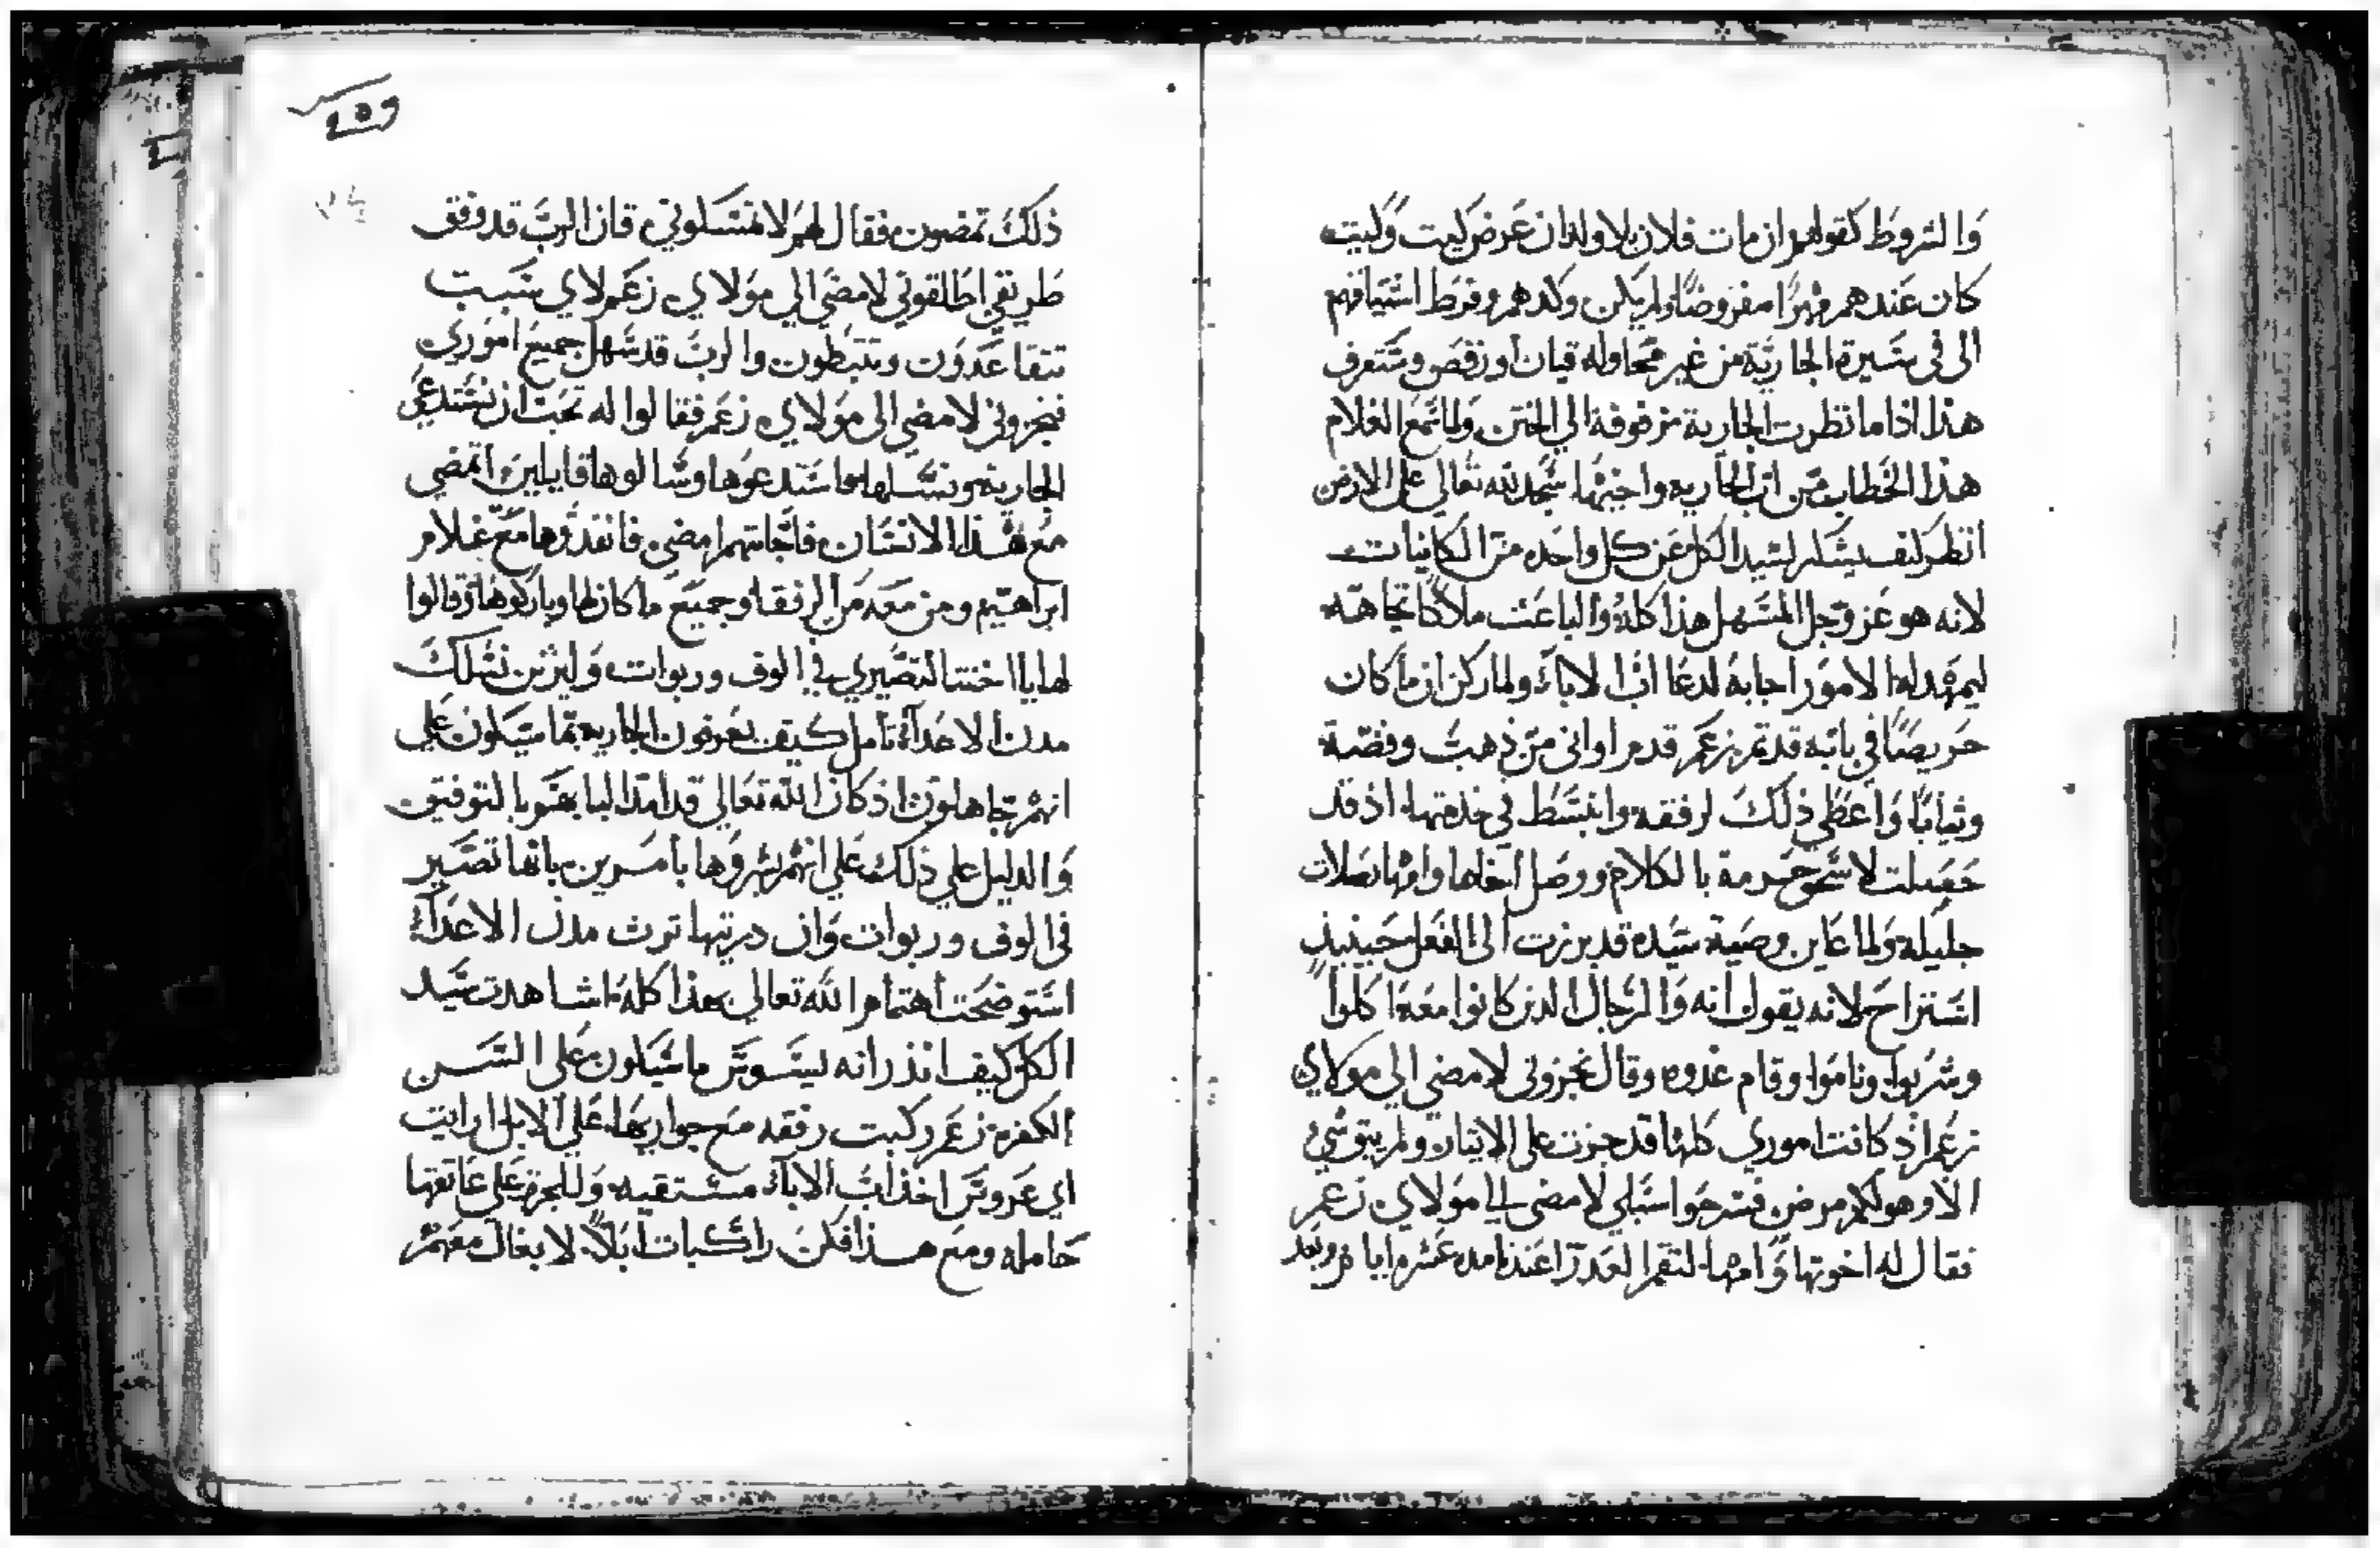 والشروط كقولهم ان مات فلان بلا ولد ان عرض كيت وكيت
كان عندهم مهرًا مفروضًا ولم يكن وكدهم وفرط اشتياقهم
الى في سيرة الجارية من غير محاوله قيان ورقص وستعرف
هذا اذا ما نظرت الجارية مزفوفة الي الختن ولما سمع الغلام
هذا الخطاب من اب الجاريه واخيها سجد لله تعالي على الارض
انظر كيف يشكر لسيد الكل عن كل واحده من الكاينات
لانه هو عز وجل المسهل هذا كله والباعث ملاكًا تجاهه
ليمهد له الامور اجابة لدعا اب الاباء ولما ركن ان ما كان
حريصًا في بابه قد تم زعم قدم اواني من ذهب وفضة
وثيابًا واعطي ذلك لرفقه وانبسط في خدمتها اذ قد
حصلت لاسحق حرمة بالكلام ووصل اخاها وامها بصلات
جليله ولما عاين وصية سيده قد برزت الى الفعل حينيذ
استراح لانه يقول انه والرجال الذين كانوا معه اكلوا
وشربوا وناموا وقام غدوه وقال نجزوني لامضي الي مولاي
زعم اذ كانت اموري كلها قد جزت على الايثار ولم يبق شي
الا وهو لكم مرض فسرحوا سبلي لامضي الي مولاي زعم
فقال له اخوتها وامها لتقم العذرا عندنا مده عشره ايام وبعد
ذلك تمضون فقال لهم لا تمسكوني فان الرب قد وفق
طريقي اطلقوني لامضي الي مولاي زعم لاي سبب
تتقاعدون وتتبطون والرب قد سهل جميع اموري
فنجزوني لامضي الى مولاي زعم فقالوا له نحب ان نستدعي
الجارية ونسلها فاستدعوها وسالوها قايلين اتمضي
مع هذا الانسان فاجابتهم امضي فانفذوها مع غلام
ابراهيم ومن معه من الرفقا وجميع ما كان لها وباركوها وقالوا
لها يا اختنا لتصيري في الوف وربوات وليرث نسلك
مدن الاعداء تامل كيف يعرفون الجاريه بما سيكون على
انهم تجاهلون اذ كان الله تعالي قد امد البابهم بالتوفيق
والدليل علي ذلك علي انهم بشروها بامرين بانها تصير
في الوف وربوات وان ذريتها ترث مدن الاعداء
استوضحت اهتمام الله تعالي بهذا كله اشاهدت سيد
الكل كيف انذر انه ليسوس ما سيكون على السن
الكفره زعم ركبت رفقه مع جواريها علي الابل ارايت
اي عروس اخذ اب الاباء مستقيه وللجرة علي عاتقها
حامله ومع هذا فكن راكبات ابلاً لا بغال معهم